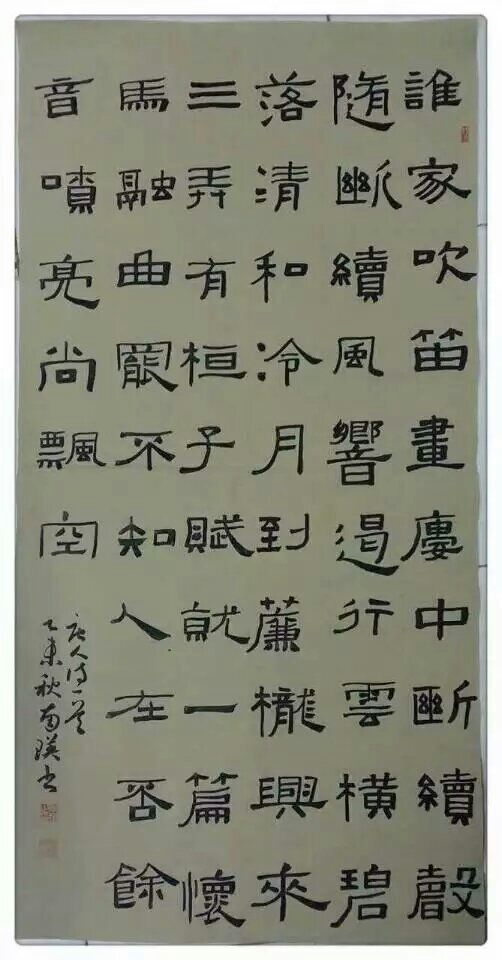 誰家吹笛畫廔中斷續聲
隨斷續風響遏行雲橫碧
落清和冷月到簾櫳興來
三弄有桓子賦就一篇懷
馬融曲罷不知人在否餘
音噴亮尚飄空
唐人诗一首
乙未秋南瑛书